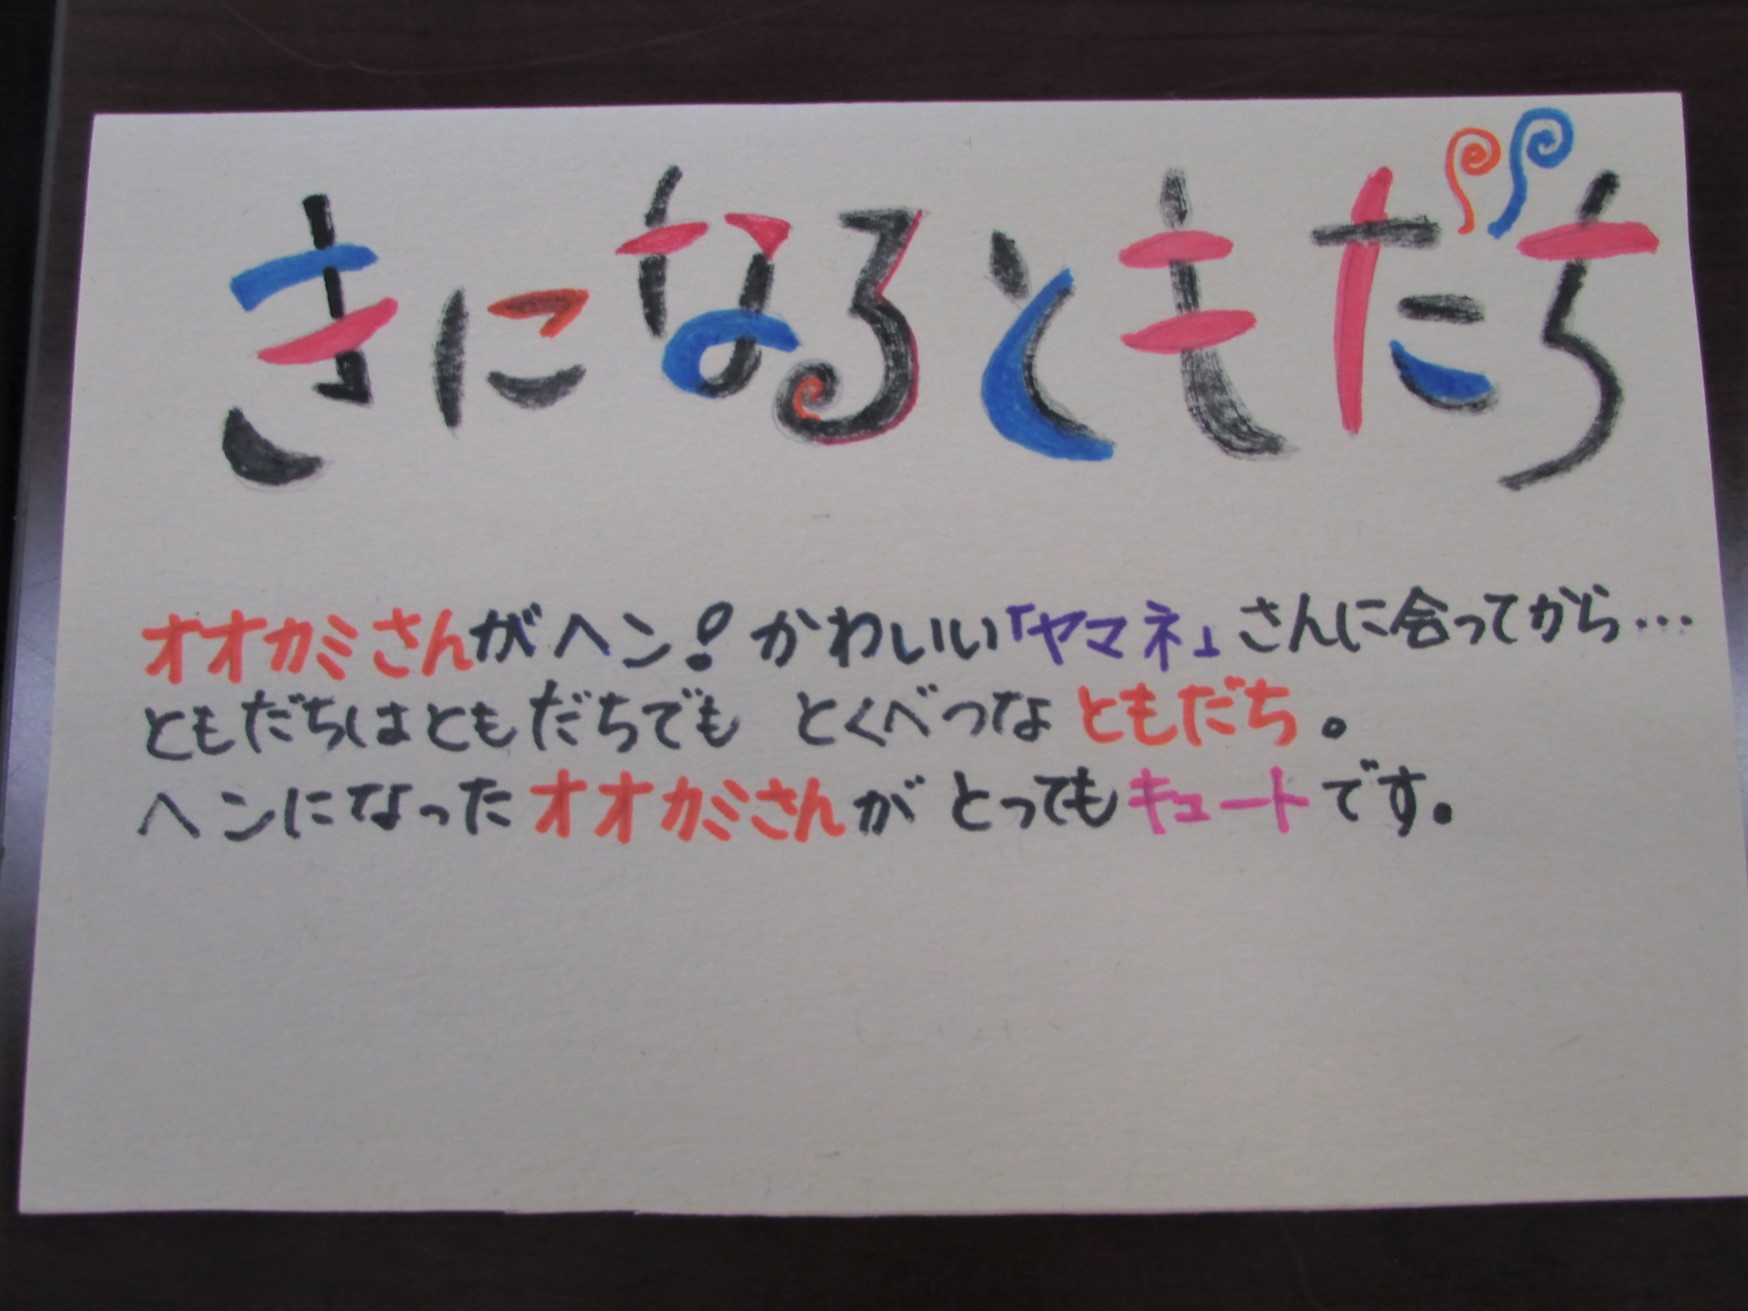 きになるともだち
オオカミさんがヘン!かわいい「ヤマネ」さんに合ってから…
ともだちはともだちでも とくべつな ともだち。
ヘンになったオオカミさんが とってもキュートです。